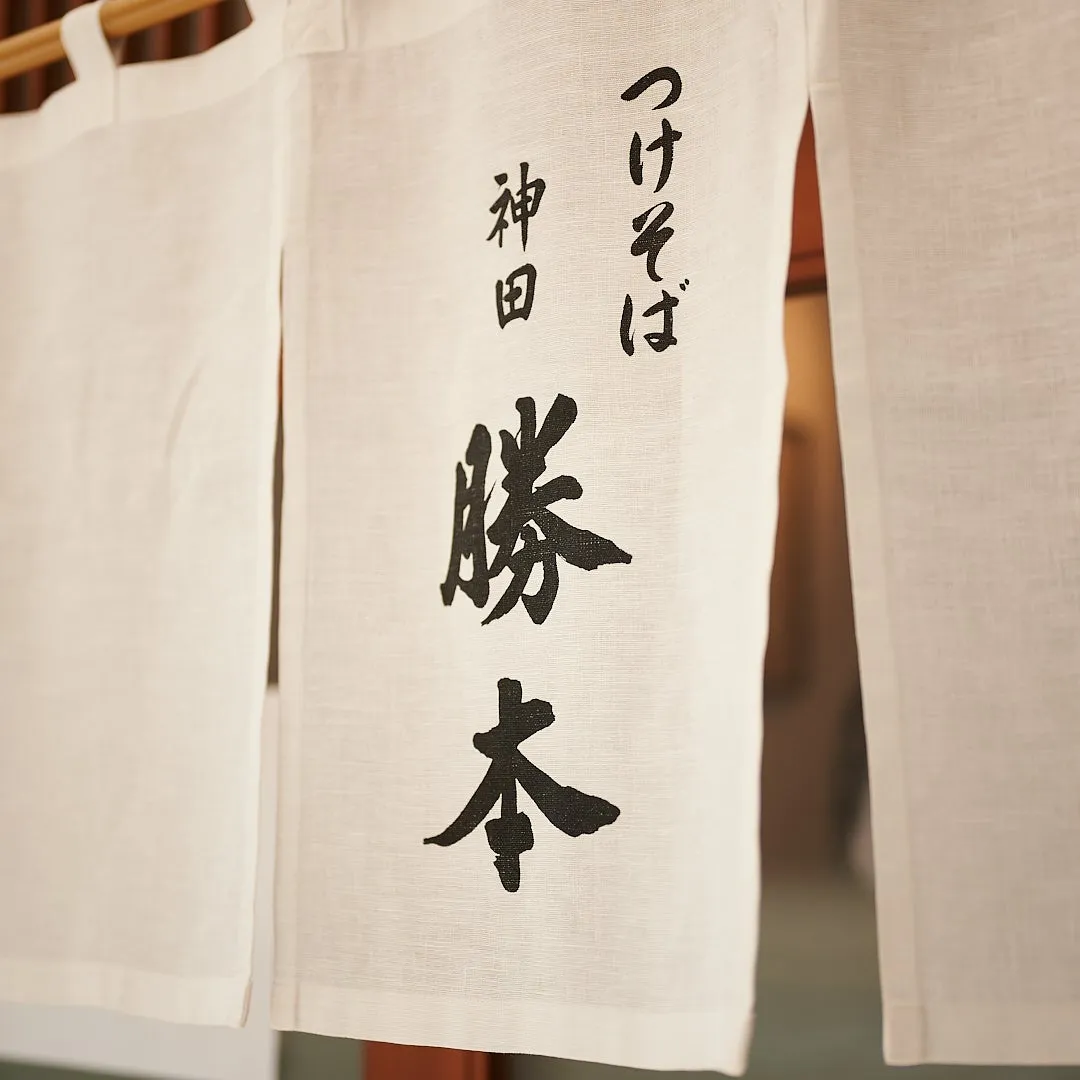 つけそば
神田
勝本